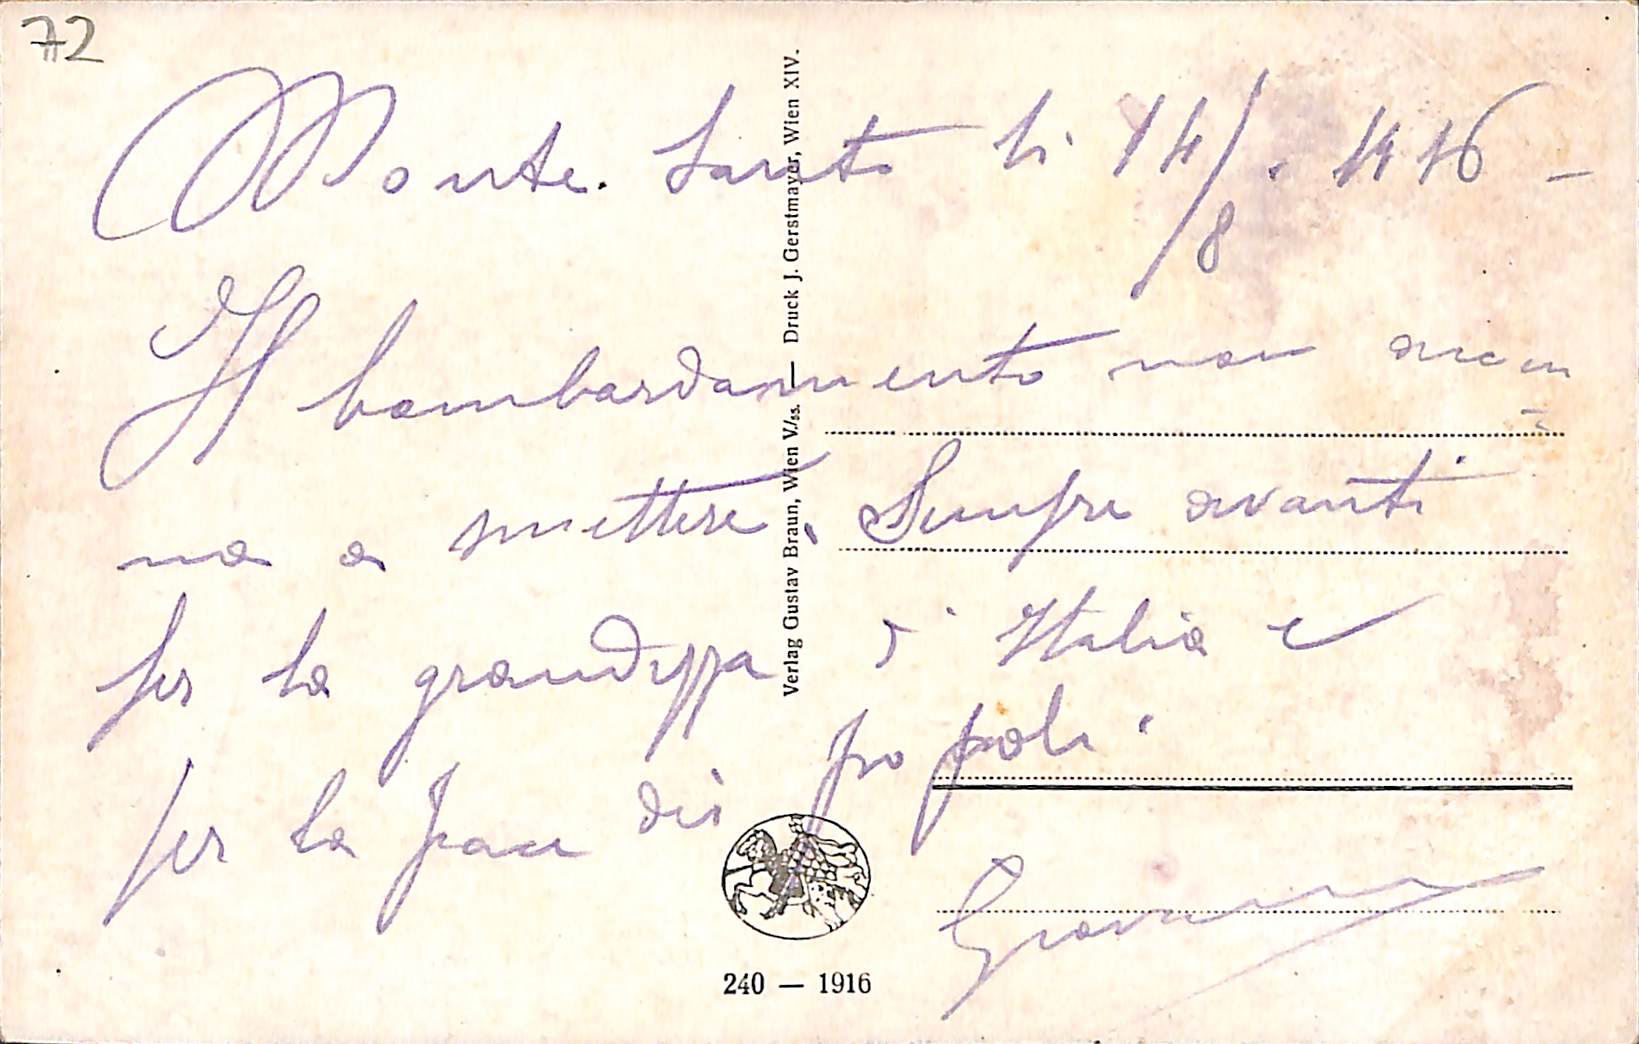 72
Monte. Santo li 14/8. 1916 -
Il bombardamento non accen
na a smettere. Sempre avanti
per la grandezza d'Italia e
per la pace dei popoli.
Giovanni
Verlag Gustav Braun, Wien V/55. — Druck J. Gerstmayer, Wien XIV.
240 — 1916